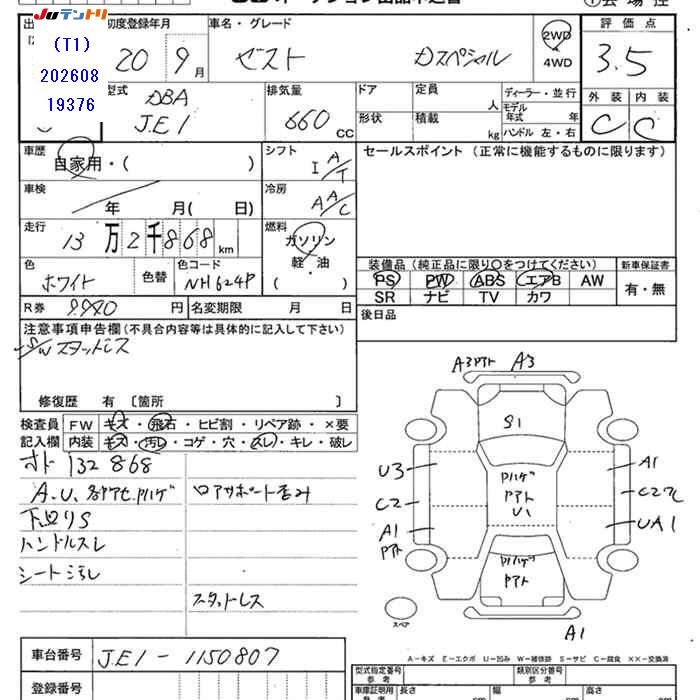 Juテントリ
(T1)
202608
19376
初度登録年月
20年9月
車名・グレード
ゼスト Dスペシャル
2WD
4WD
評価点
3.5
型式
DBA
JE1
排気量
660 CC
ドア
定員 人
ディーラー・並行
モデル
年式 年
形状
積載 kg
ハンドル 左・右
外装 内装
C C
車歴
自家用・( )
シフト
I A/T
セールスポイント (正常に機能するものに限ります)
車検
年 月( 日)
冷房
A A/C
走行
13万2千868km
燃料
ガソリン
軽・油
( )
色
ホワイト
色替
色コード
NH624P
装備品(純正品に限り〇をつけてください)
新車保証書
PS PW ABS エアB AW
有・無
SR ナビ TV カワ
R券 9.940 円
名変期限 月 日
後日品
注意事項申告欄(不具合内容等は具体的に記入して下さい)
S/Wスタッドレス
修復歴 有 〔箇所 〕
検査員 FW キズ・飛石・ヒビ割・リペア跡・×要
記入欄 内装 キズ・汚レ・コゲ・穴・スレ・キレ・破レ
オド 132868
A.U、各アセ、Pハゲ ロアサポート凹み
下廻りS
ハンドルスレ
シート汚レ
スタットレス
A3Pアト A3
S1
U3
A1
Pハゲ
Pアト
U1
C2
C2穴
A1
Pアト
UA1
Pハゲ
Pアト
スペア
A1
A-キズ E-エクボ U-凹み W-補修跡 S-サビ C-腐食 ××-交換済
車台番号 JE1-1150807
型式指定番号
参考
類別区分番号
参考
登録番号
車庫証明用
参考
長さ 幅 高さ